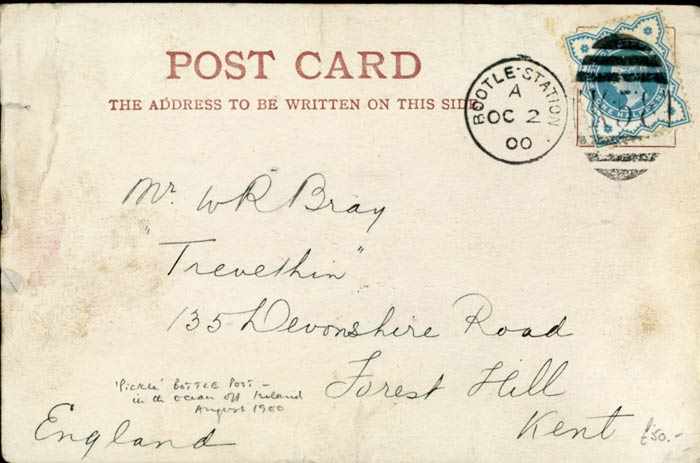 POST CARD
THE ADDRESS TO BE WRITTEN ON THIS SIDE.
BOOTLE·STATION
A
OC 2
00
Mr. W R Bray
"Trevethin"
135 Devonshire Road
Forest Hill
Kent
England
'Pickle' BOTTLE POST –
in the ocean off Ireland
August 1900
£50.-